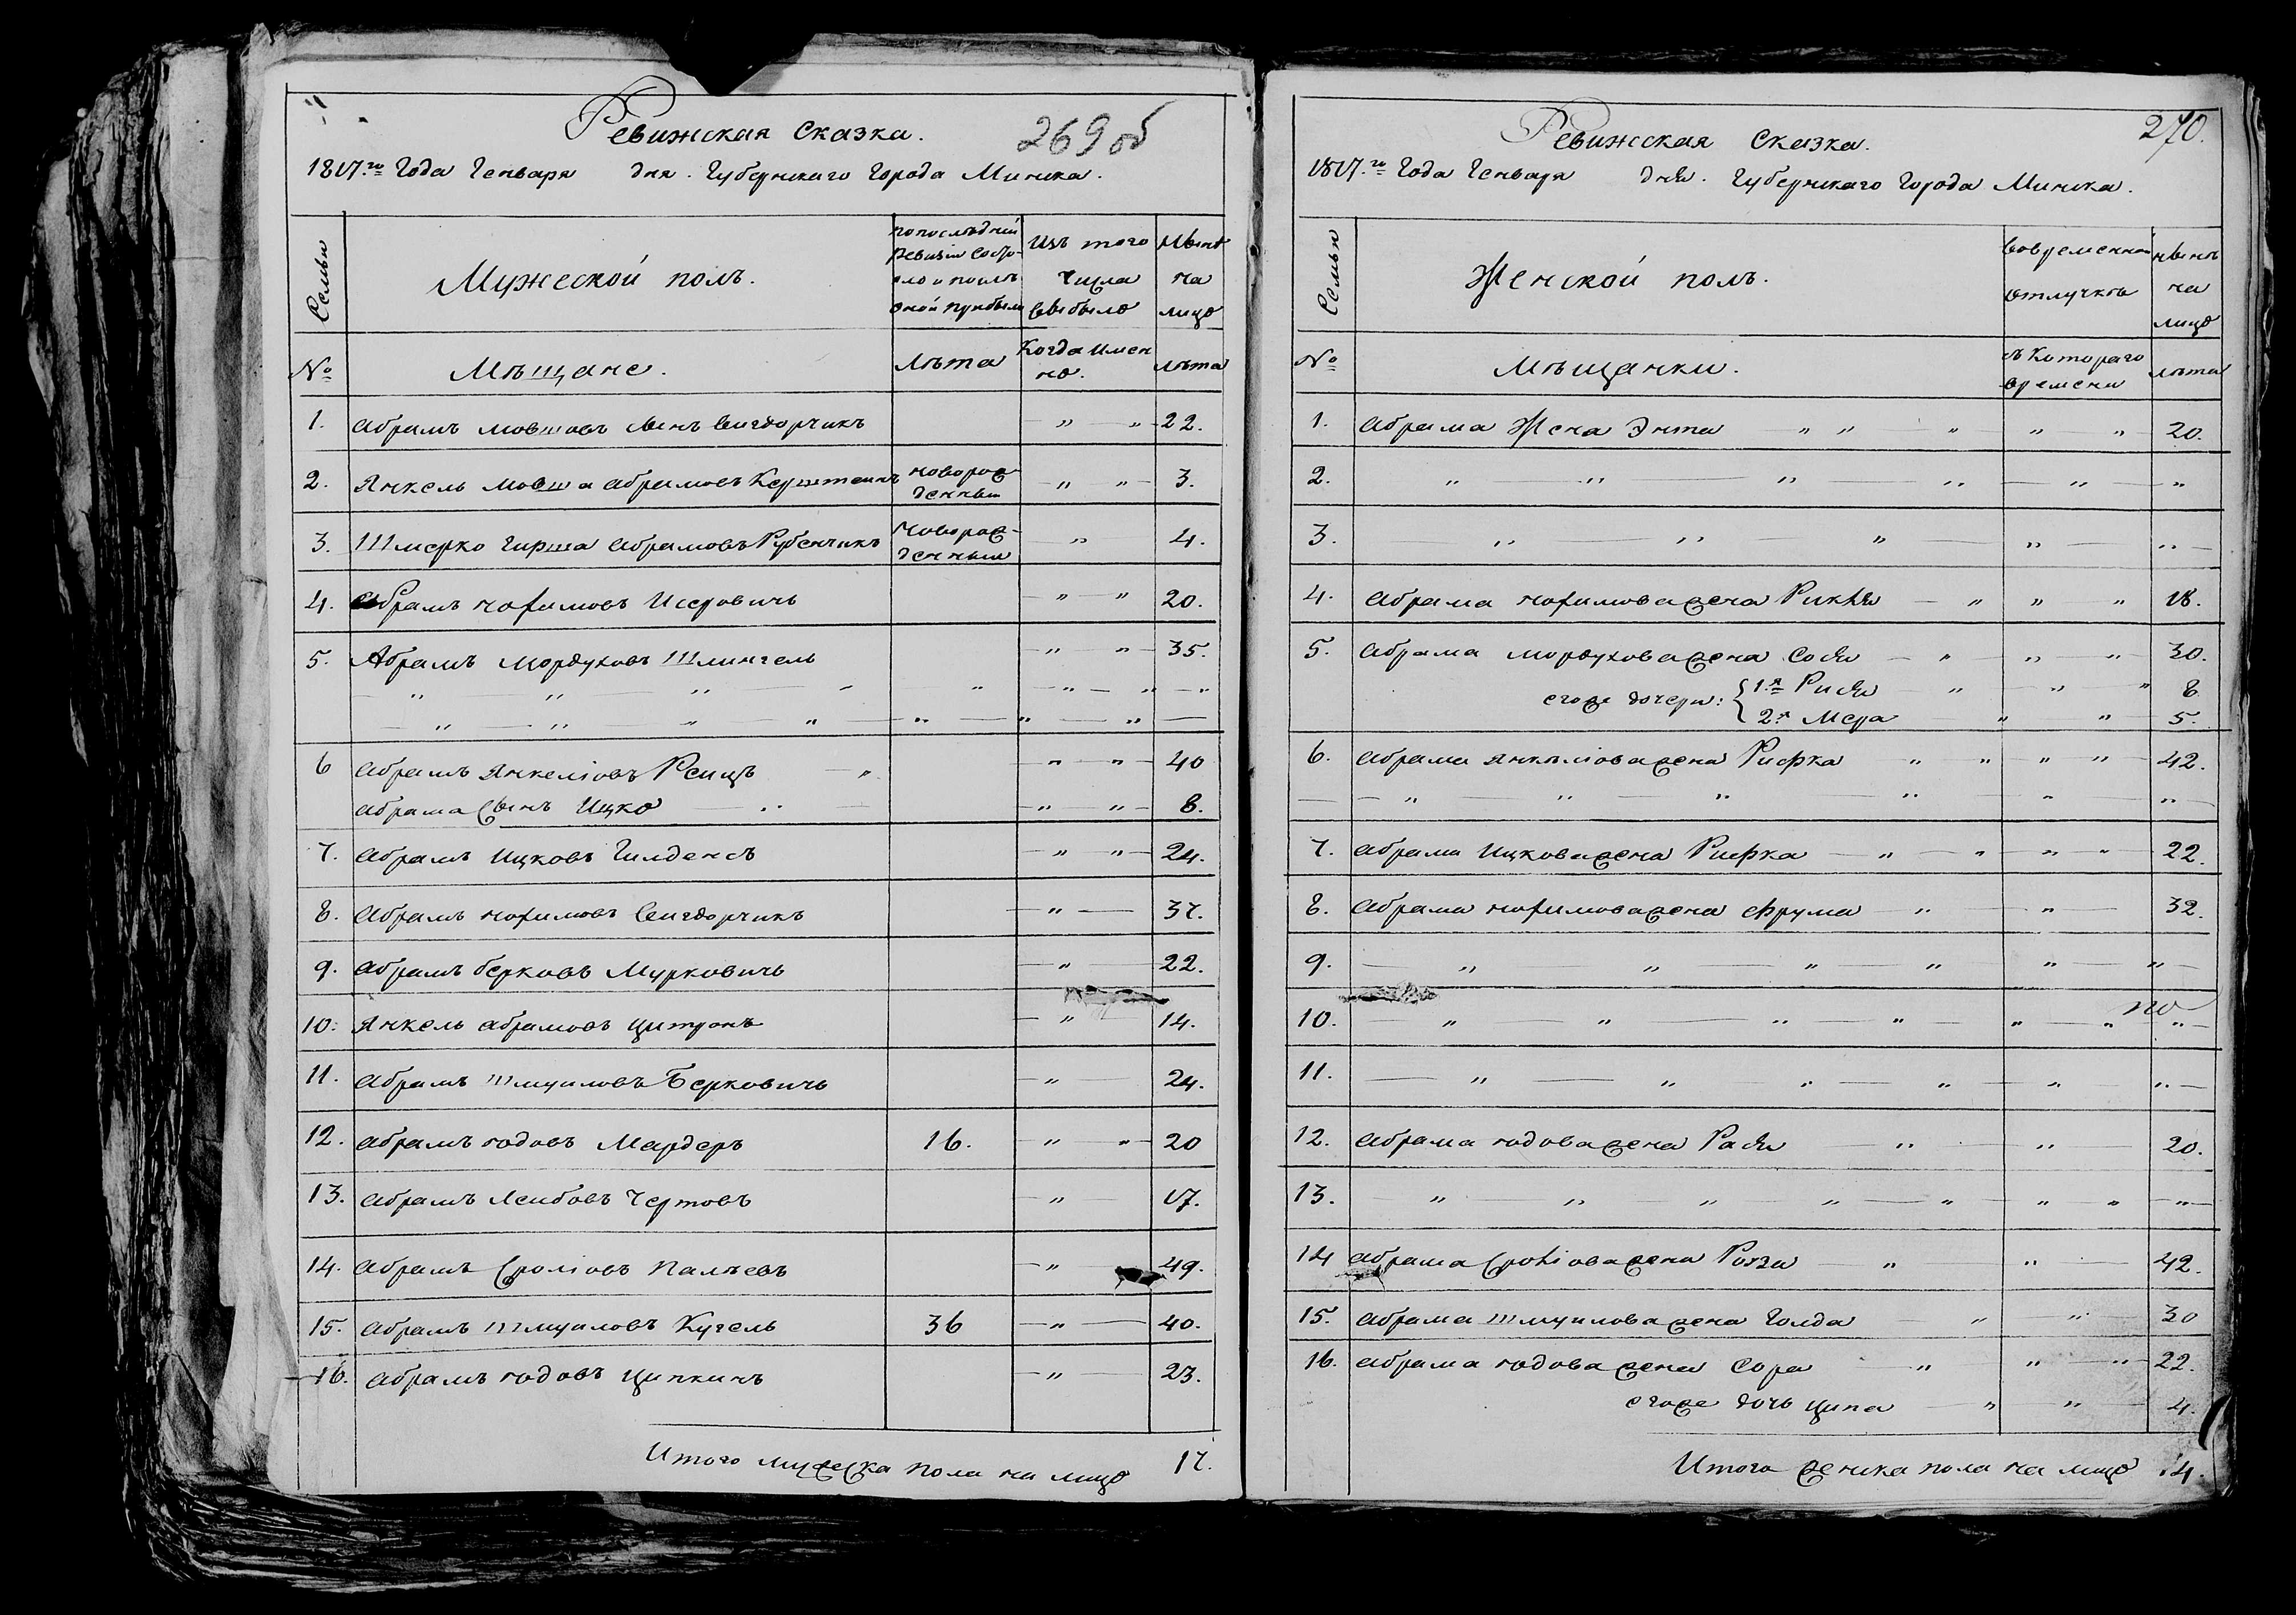 Ревижская Сказка.
269 об
1817.го Года Генваря дня. Губернскаго Города Минска.
Семьи
Мужеской полъ.
по последней
Ревизіи состо-
яло и послѣ
оной прибыло
Изъ того
числа
выбыло
Нынѣ
на
лицо
№
Мѣщане.
Лѣта
Когда имен
но.
Лѣта
1. Абрамъ Мовшовъ сынъ Вигдорчикъ " " 22.
2. Янкель Мовша Абрамовъ Керштеинъ новорож-
денный " " 3.
3. Шмерко Гирша Абрамовъ Рубенчикъ Новорож-
денныи " 4.
4. Абрамъ Нохимовъ Исеровичь " " 20.
5. Абрамъ Мордуховъ Шлингель " " 35.
" " " " " " " "
" " " " " " "
6 Абрамъ Янкеліовъ Реицъ " " " 40
Абрама Сынъ Ицко " " " 8.
7. Абрамъ Ицковъ Гилденсъ " " 24.
8. Абрамъ Нохимовъ Вигдорчикъ " 37.
9. Абрамъ Берковъ Мурковичь " 22.
10. Янкель Абрамовъ Цитронъ " 14.
11. Абрамъ Шмуиловъ Берковичь " 24.
12. Абрамъ Іодовъ Мардеръ 16. " " 20
13. Абрамъ Леибовъ Чертовъ " 17.
14. Абрамъ Сроліовъ Палѣевъ " 49.
15. Абрамъ Шмуиловъ Кугель 36 " 40.
16. Абрамъ Іодовъ Ципкинъ " 23.
Итого мужеска пола на лицо 17.
270.
Ревижская Сказка.
1817.го Года Генваря дня. Губернскаго Города Минска.
Семьи
Женской полъ.
Вовременной
отлучкѣ
нынѣ
на
лицо
№
Мѣщанки.
съ Котораго
времени
лѣта
1. Абрама Жена Энта " " " " " 20.
2. " " " " " "
3. " " " " "
4. Абрама Нохимова жена Рикля " " " 18.
5. Абрама Мордухова жена Сося " " " 30.
егоже дочери: 1.я Рися " " " 8
2.я Мера " " 5.
6. Абрама Янкеліова жена Рифка " " " " 42.
" " " " " "
7. Абрама Ицкова жена Рифка " " " " 22.
8. Абрама Нохимова жена Фрума " " 32.
9. " " " " " "
10. " " " " " " "
11. " " " " " "
12. Абрама Іодова жена Рася " " 20.
13. " " " " " " " "
14 Абрама Сроліова жена Роза " " 42.
15. Абрама Шмуилова жена Голда " " 30
16. Абрама Іодова жена Сора " " " 22.
егоже дочь Ципа " " 4.
Итого женска пола на лицо 14.